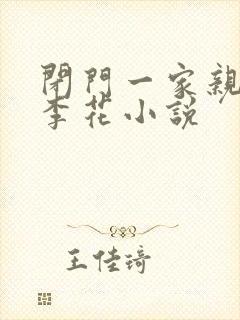 閉門一家親
李花小説
王佳琦